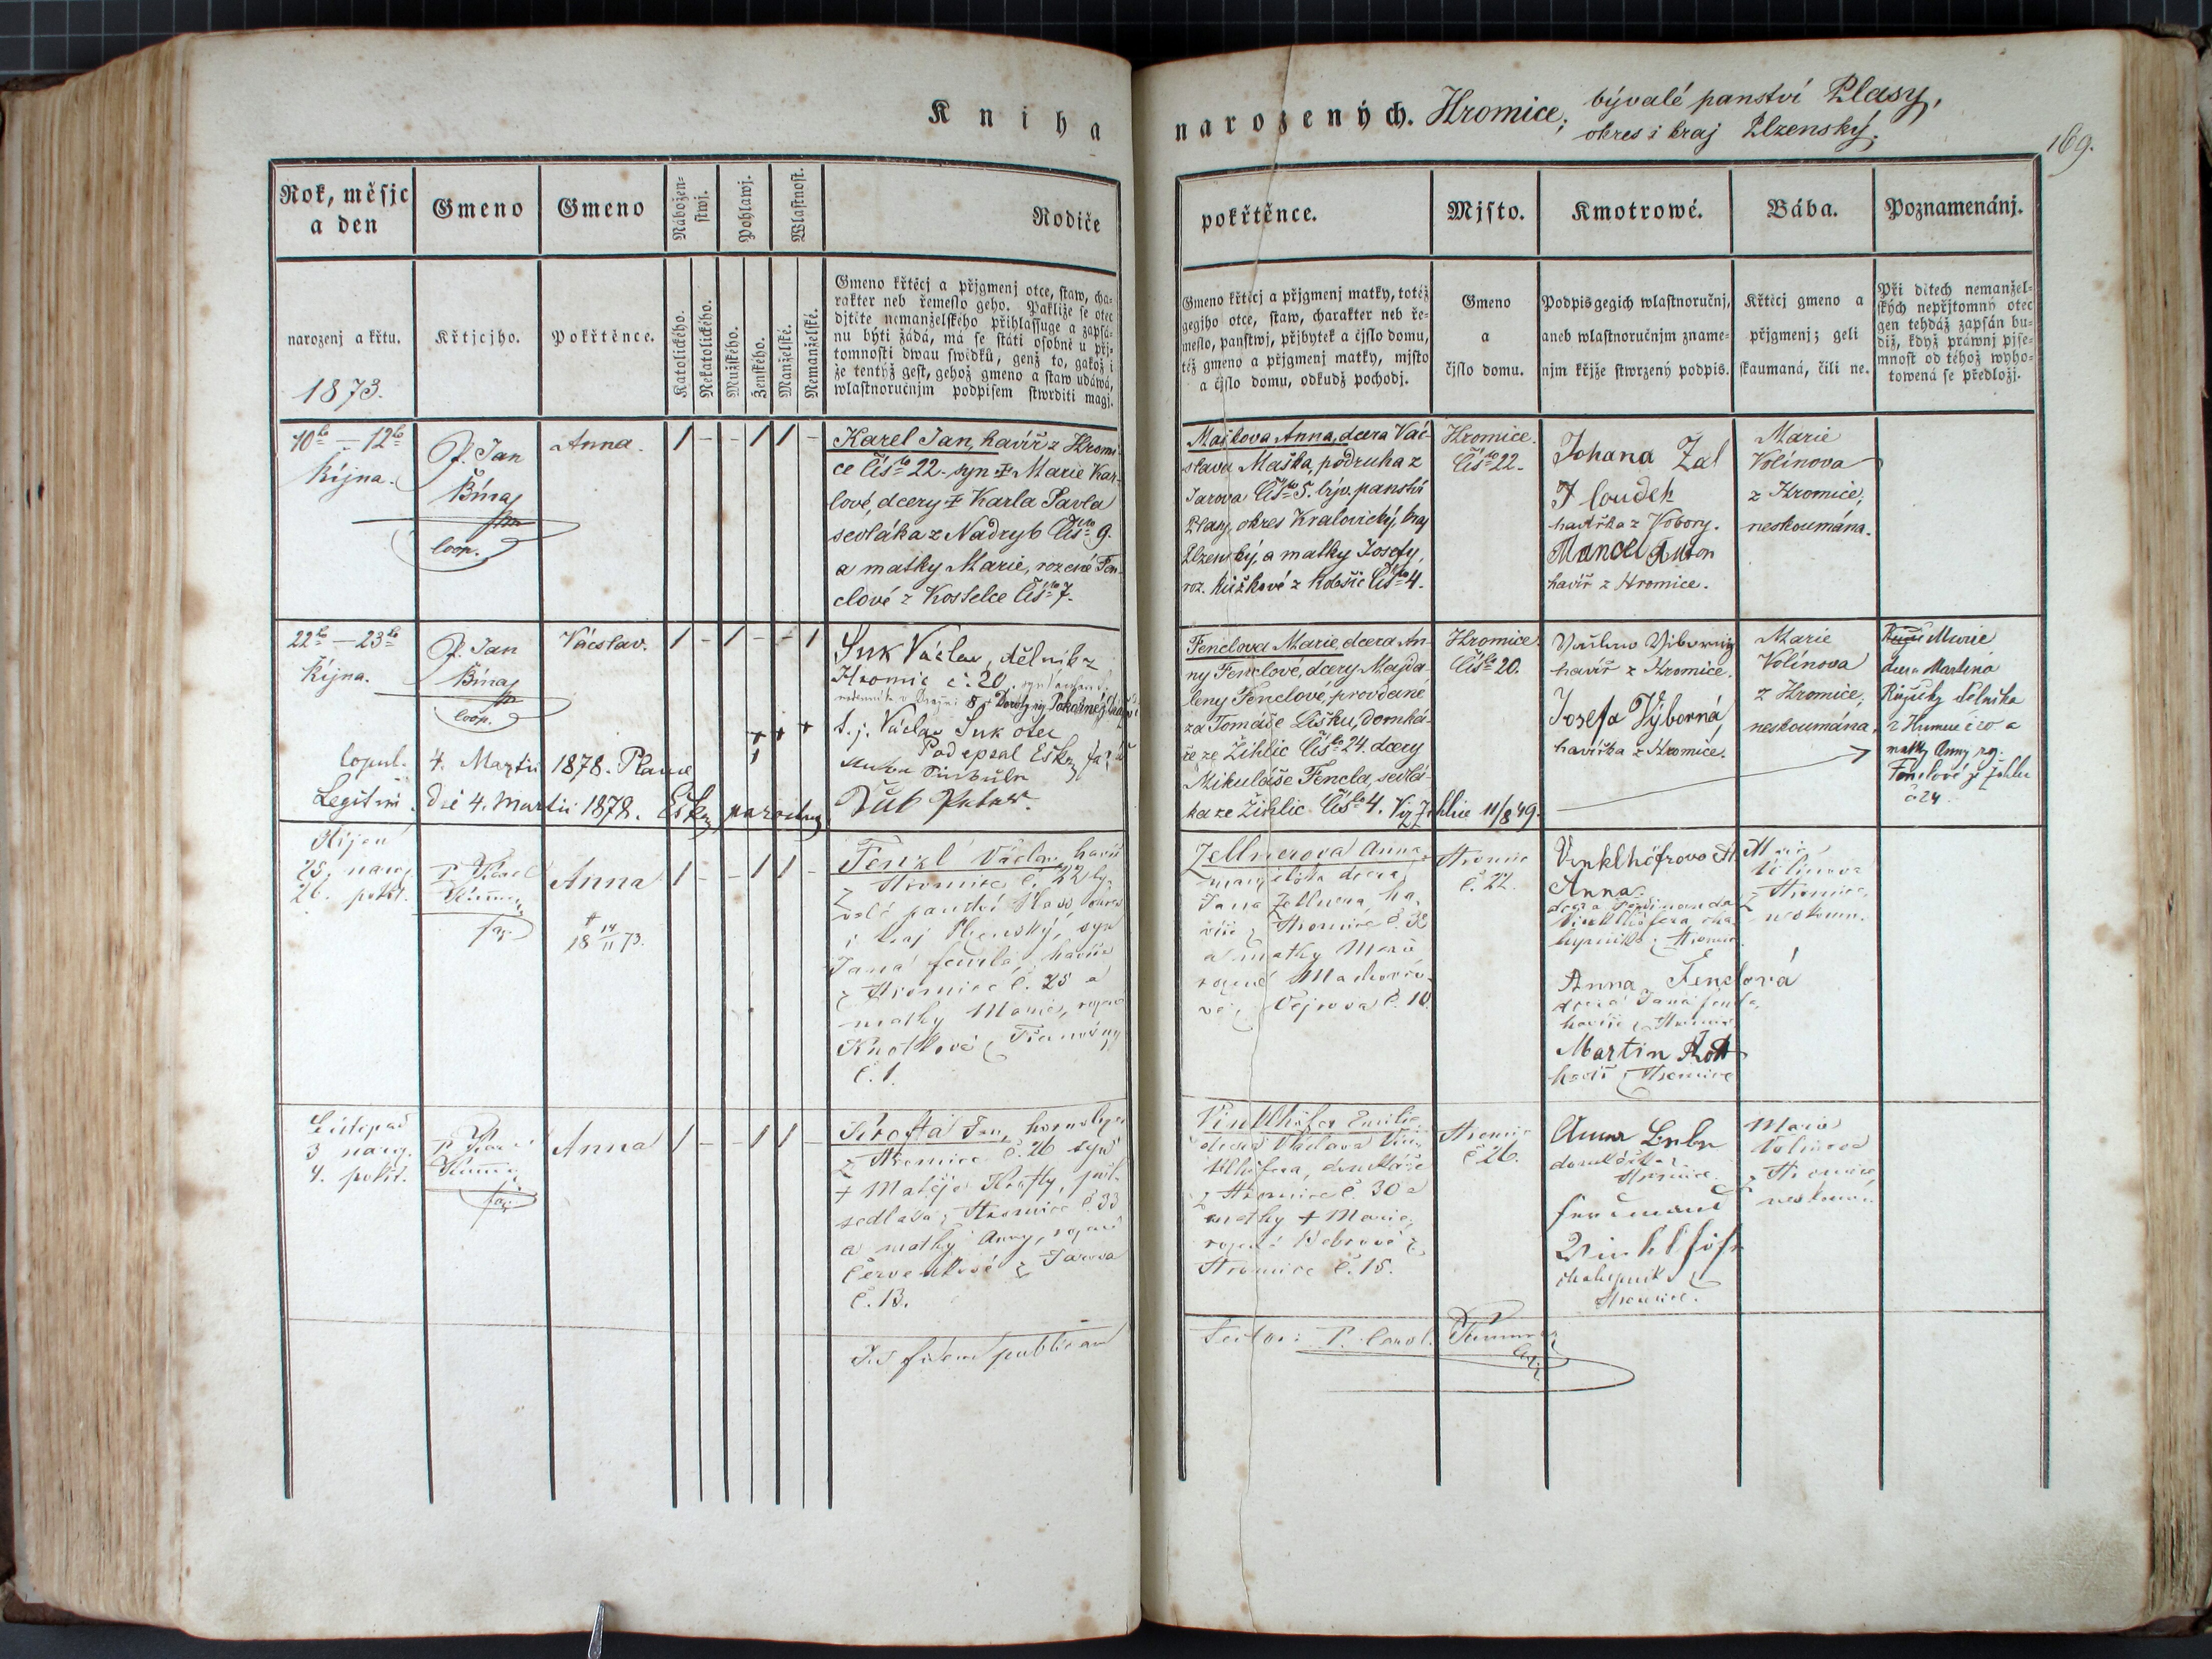 Kniha
narozených. Hromice, bývalé panství Plasy,
okres i kraj Plzenský.
169.
Rok, měsjc
a den
Gmeno
Gmeno
Nábožen-
stwj.
Pohlawj.
Wlastnost.
Rodiče
pokřtěnce.
Mjsto.
Kmotrowé.
Bába.
Poznamenánj.
narozenj a křtu.
1873.
Křtjcjho.
Pokřtěnce.
Katolického.
Nekatolického.
Mužského.
Ženského.
Manželské.
Nemanželské.
Gmeno křtěcj a přjgmenj otce, staw, cha-
rakter neb řemeslo geho. Pakliže se otec
djtěte nemanželského přihlassuge a zapsá-
nu býti žádá, má se státi osobně u přj-
tomnosti dwau swědků, genž to, gakož i
že tentýž gest, gehož gmeno a staw udáwá,
wlastnoručnjm podpisem stwrditi magj.
Gmeno křticj a přjgmenj matky, totéž
gegjho otce, staw, charakter neb ře-
meslo, panstwj, přjbytek a čjslo domu,
též gmeno a přjgmenj matky, mjsto
a čjslo domu, odkudž pochodj.
Gmeno
a
čjslo domu.
Podpis gegich wlastnoručnj,
aneb wlastnoručnjm zname-
njm křjže stwrzený podpis.
Křticj gmeno a
přjgmenj; geli
skaumaná, čili ne.
Při dětech nemanžel-
ských nepřjtomný otec
gen tehdáž zapsán bu-
diž, když práwnj pjse-
mnost od téhož wyho-
towená se předložj.
10ho — 12ho
Října.
P. Jan
Bína
coop.
Anna.
1 - - 1 1 -
Karel Jan, havíř z Hromi-
ce Čís. 22. syn † Marie Kar-
lové, dcery † Karla Pavla
sedláka z Nadryb Čís. 9.
a matky Marie, rozené Fen-
clové z Kostelce Čís. 7.
Maškova Anna, dcera Vác-
slava Maška, podruha z
Jarova Čís. 5. býv. panství
Plasy, okres Kralovický, kraj
Plzenský, a matky Josefy,
roz. Čís. 4.
Hromice.
Čís. 22.
Johana Zal
havířka z Vobory.
Mancel Anton
havíř z Hromice.
Marie
Volínova
z Hromice,
neskoumána.
22ho — 23ho
Října.
P. Jan
Bína
coop.
Václav.
1 - 1 - - 1
Suk Václav, dělník z
Hromic č. 20.
t. j. Václav Suk otec
Podepsal
copul. 4. Martii 1878.
Legitim. die 4. Martii 1878.
Fenclova Marie, dcera An-
ny Fenclové, dcery Majda-
leny Fenclové, provdané
za Tomáše Lišku, domká-
ře ze Žihlic Čís. 24. dcery
Mikuláše Fencla, sedlá-
ka ze Žihlic Čís. 4. 11/8 49.
Hromice.
Čís. 20.
havíř z Hromice.
Josefa Výborná,
havířka z Hromice.
Marie
Volínova
z Hromice,
neskoumána.
Marie
dcera Martina
Růžičky dělníka
z Hromice a
matky Anny roz.
Fenclové
č 24.
Říjen
25. naroz.
26. pokřt.
P. Karel
Anna
† 18 14/11 73.
1 - - 1 1 -
Fencl Václav, havíř
z Hromice č. 22 by-
valé panství Plasy okres
i kraj Plzenský, syn
Jana Fencla, havíře
z Hromice č. 25 a
matky Marie, rozené
Knotkové z Třemošny
č. 1.
Zellnerova Anna,
manželská dcera
Jana Zellnera, ha-
víře z Hromice č. 32
a matky Marie
rozené
č. 10
Hromice
č. 22.
Anna
Anna Fenclová
dcera Jana Fencla,
havíře z Hromice
Martin Rott
havíř z Hromice
Marie
Volínova
z Hromice
neskoum.
Listopad
3 naroz.
4. pokřt.
P. Karel
Anna
1 - - 1 1 -
Krofta Jan,
z Hromice č. 26 syn
† Matěje Krofty, půl-
sedláka z Hromice č. 33
a matky Anny, rozené
Červenkové z Jarova
č. 13.
Vinklhöfer Emilie
dcera Václava Vin-
klhöfera, domkáře
z Hromice č. 30 a
matky † Marie,
rozené Webrové z
Hromice č. 15.
Hromice
č 26.
Anna
domkářka z
Hromice.
Ferdinand
Vinklhöfer
chalupník z
Hromice.
Marie
Volínova
z Hromice
neskoum.
Ad fidem publicam
P. Carol.